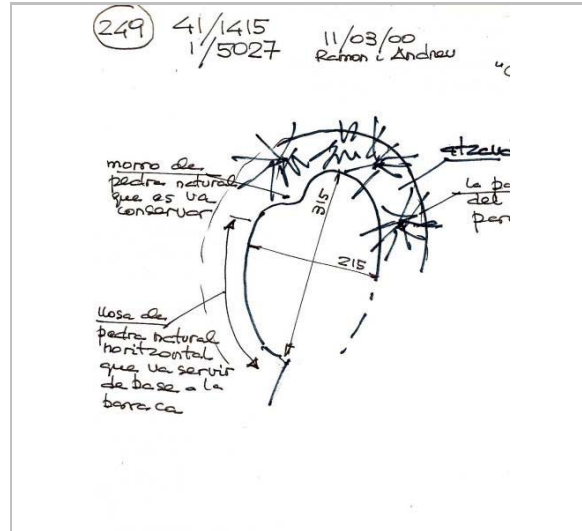 249 41/1415 11/03/00
1/5027 Ramon i Andreu
"C
morro de
pedra natural
que es va
conservar
atzava
la pa
del
par
315
215
llosa de
pedra natural
horitzontal
que va servir
de base a la
barraca